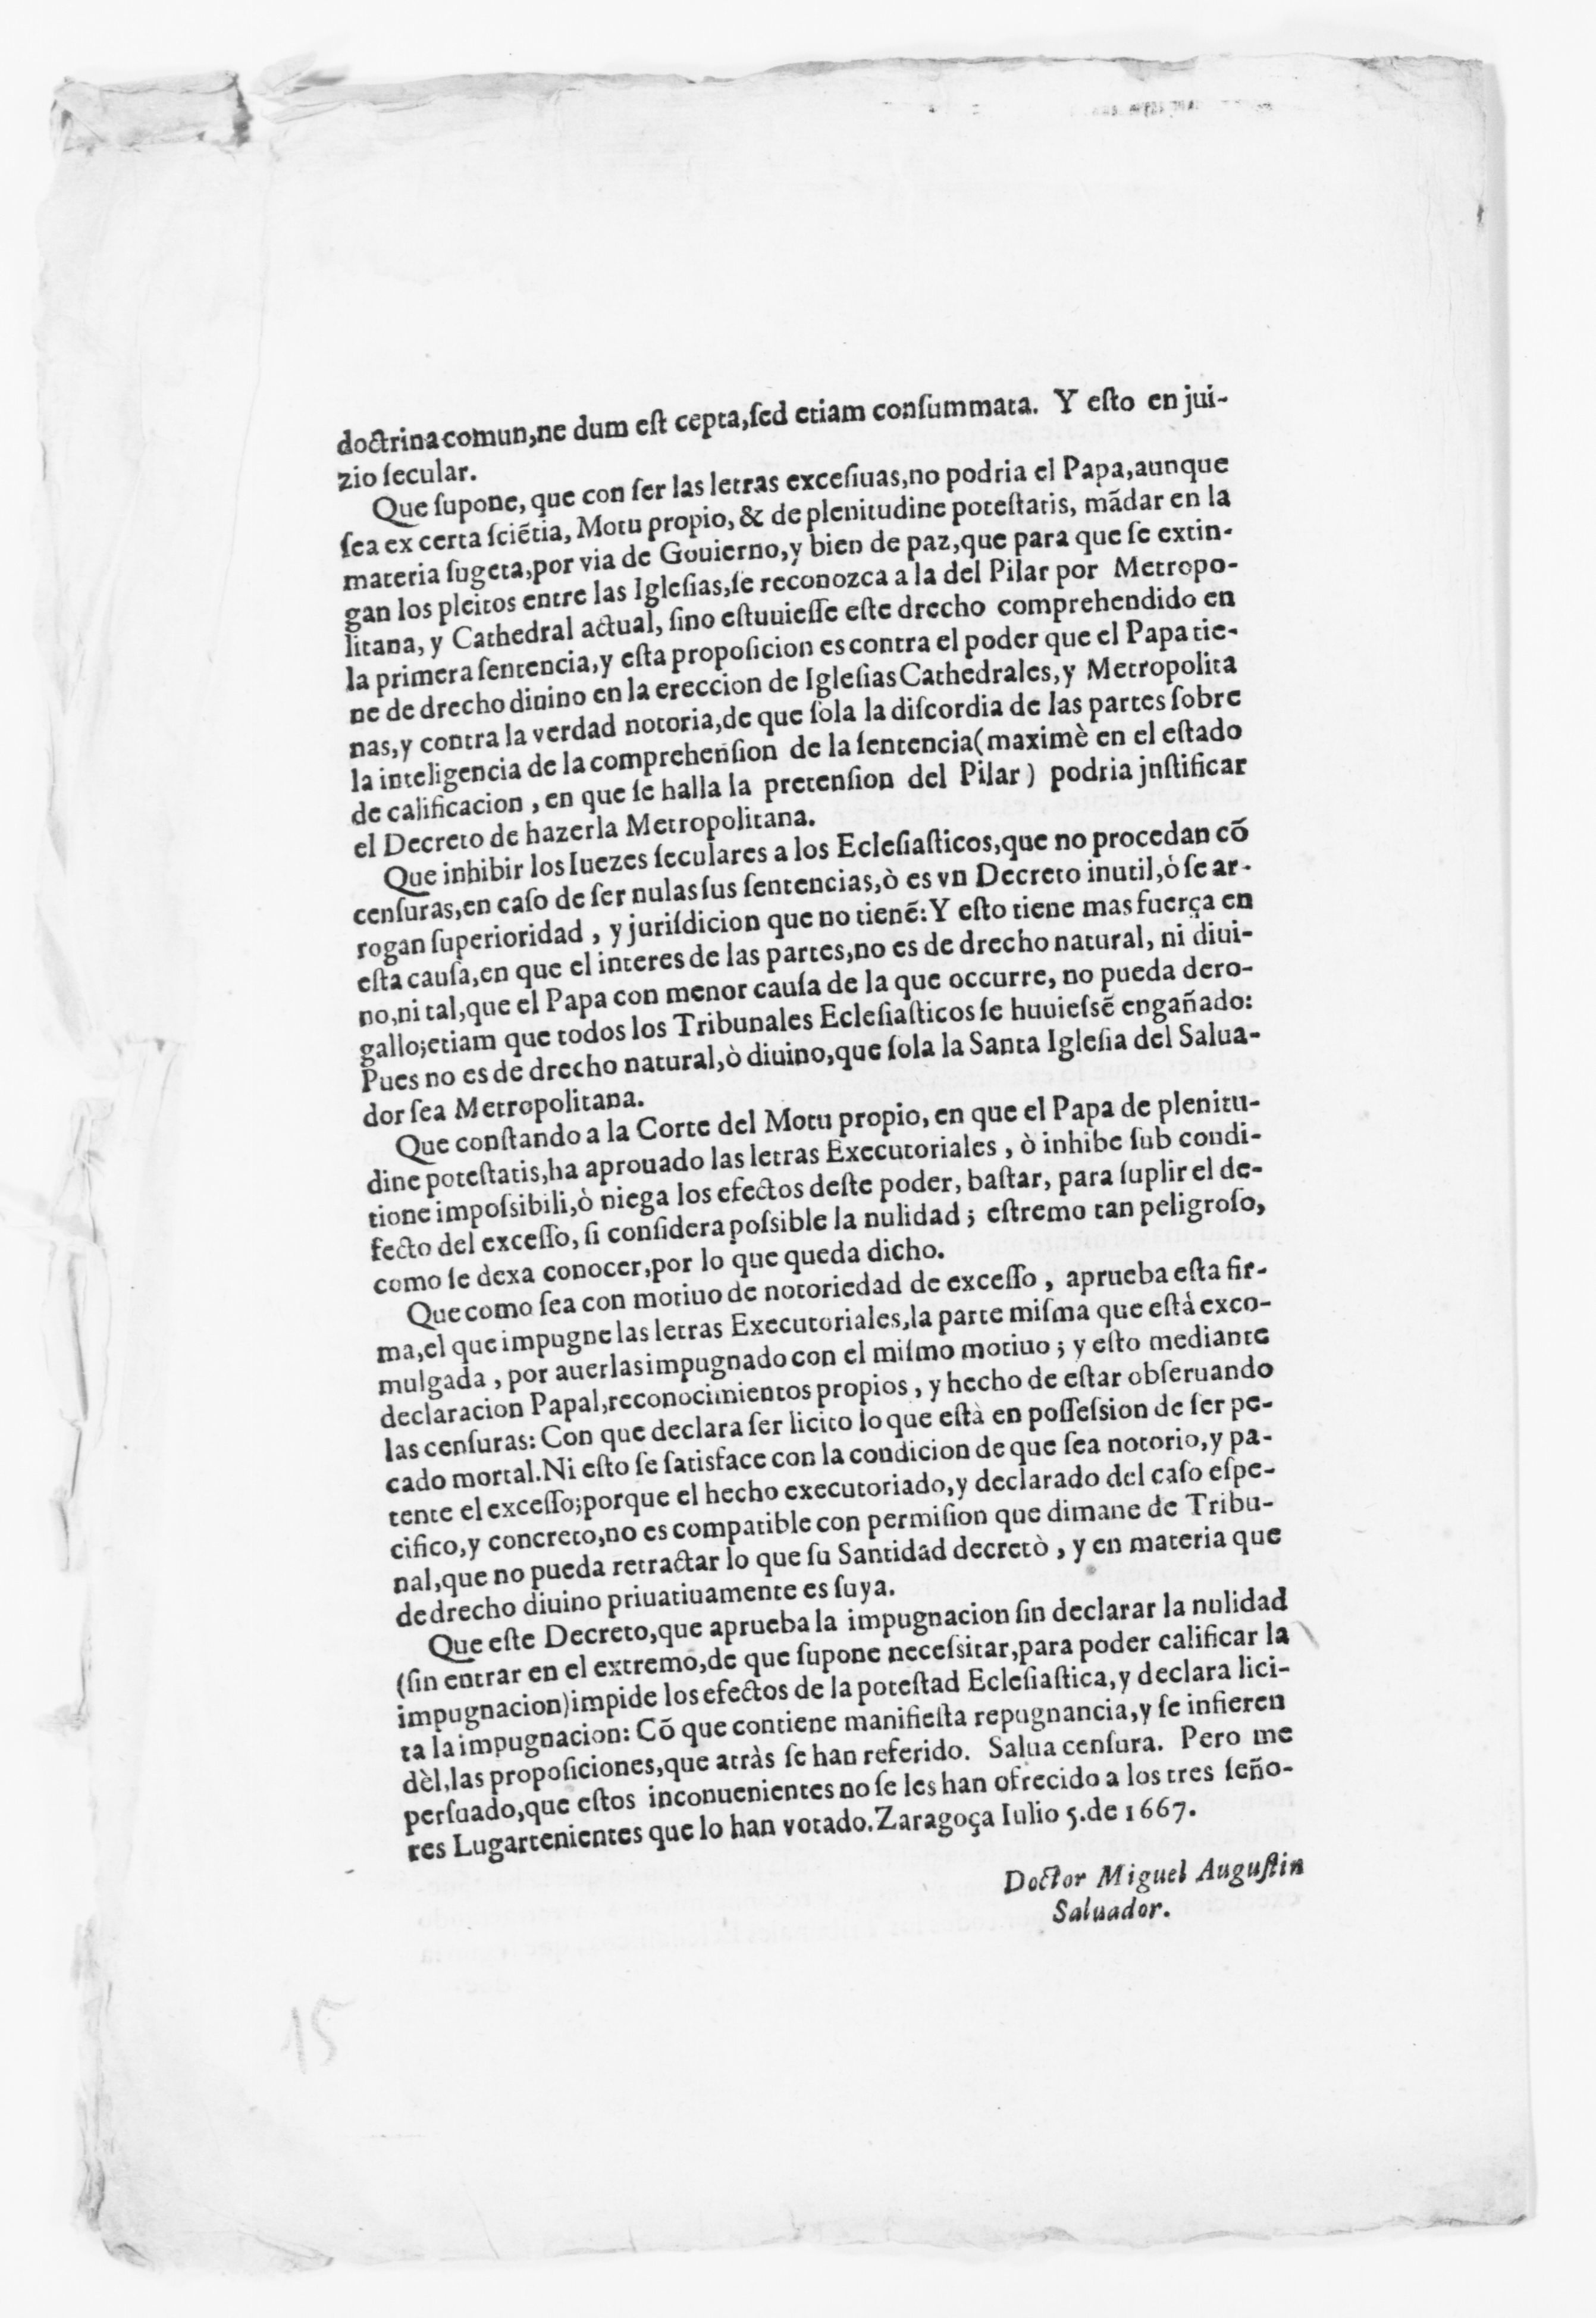 doctrina comun,ne dum eſt cepta,ſed etiam conſummata. Y eſto en jui-
zio ſecular.
Que ſupone, que con ſer las letras exceſiuas,no podria el Papa,aunque
ſea ex certa ſciẽtia, Motu propio, & de plenitudine poteſtatis, mãdar en la
materia ſugeta,por via de Gouierno,y bien de paz,que para que ſe extin-
gan los pleitos entre las Igleſias,ſe reconozca a la del Pilar por Metropo-
litana, y Cathedral actual, ſino eſtuuieſſe eſte drecho comprehendido en
la primera ſentencia,y eſta propoſicion es contra el poder que el Papa tie-
ne de drecho diuino en la ereccion de Igleſias Cathedrales,y Metropolita
nas,y contra la verdad notoria,de que ſola la diſcordia de las partes ſobre
la inteligencia de la comprehenſion de la ſentencia(maximè en el eſtado
de calificacion , en que ſe halla la pretenſion del Pilar) podria jnſtificar
el Decreto de hazerla Metropolitana.
Que inhibir los Iuezes ſeculares a los Ecleſiaſticos,que no procedan cõ
cenſuras,en caſo de ſer nulas ſus ſentencias,ò es vn Decreto inutil,ò ſe ar-
rogan ſuperioridad , y juriſdicion que no tienẽ: Y eſto tiene mas fuerça en
eſta cauſa,en que el interes de las partes,no es de drecho natural, ni diui-
no,ni tal,que el Papa con menor cauſa de la que occurre, no pueda dero-
gallo;etiam que todos los Tribunales Ecleſiaſticos ſe huuieſsẽ engañado:
Pues no es de drecho natural,ò diuino,que ſola la Santa Igleſia del Salua-
dor ſea Metropolitana.
Que conſtando a la Corte del Motu propio, en que el Papa de plenitu-
dine poteſtatis,ha aprouado las letras Executoriales , ò inhibe ſub condi-
tione impoſsibili,ò niega los efectos deſte poder, baſtar, para ſuplir el de-
fecto del exceſſo, ſi conſidera poſsible la nulidad ; eſtremo tan peligroſo,
como ſe dexa conocer,por lo que queda dicho.
Que como ſea con motiuo de notoriedad de exceſſo , aprueba eſta fir-
ma,el que impugne las letras Executoriales,la parte miſma que eſtà exco-
mulgada , por auerlas impugnado con el miſmo motiuo ; y eſto mediante
declaracion Papal,reconocimientos propios , y hecho de eſtar obſeruando
las cenſuras: Con que declara ſer licito lo que eſtà en poſſeſsion de ſer pe-
cado mortal.Ni eſto ſe ſatisface con la condicion de que ſea notorio,y pa-
tente el exceſſo;porque el hecho executoriado,y declarado del caſo eſpe-
cifico,y concreto,no es compatible con permiſion que dimane de Tribu-
nal,que no pueda retractar lo que ſu Santidad decretò , y en materia que
de drecho diuino priuatiuamente es ſuya.
Que eſte Decreto,que aprueba la impugnacion ſin declarar la nulidad
(ſin entrar en el extremo,de que ſupone neceſsitar,para poder calificar la
impugnacion)impide los efectos de la poteſtad Ecleſiaſtica,y declara lici-
ta la impugnacion: Cõ que contiene manifieſta repugnancia,y ſe infieren
dèl,las propoſiciones,que atràs ſe han referido. Salua cenſura. Pero me
perſuado,que eſtos inconuenientes no ſe les han ofrecido a los tres ſeño-
res Lugartenientes que lo han votado.Zaragoça Iulio 5.de 1667.
Doctor Miguel Auguſtin
Saluador.
15